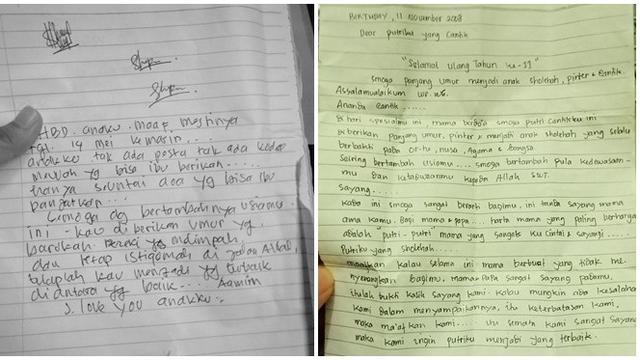 HBD. anakku. maaf mestinya
tgl. 14 mei kemarin...
anakku tak ada pesta tak ada kado
mewah yg bisa ibu berikan.....
hanya seuntai doa yg bisa ibu
panjatkan...
Semoga dg bertambahnya usiamu
ini - kau di berikan umur yg.
barokah rezeki yg melimpah,
dan tetap istiqomah di jalan Allah,
tetaplah kau menjadi yg terbaik
di antara yg baik... Aamiin
I love you anakku.
BIRTHDAY, 11 November 2008
Dear putriku yang Cantik
"Selamat Ulang Tahun ke-11"
Semoga panjang umur menjadi anak sholehah, pinter & Cantik.
Assalamualaikum wr. wb.
Ananda Cantik.......
Di hari spesialmu ini, mama berdo'a smoga putri cantikku ini
di berikan panjang umur, pinter & menjadi anak sholehah yang selalu
berbakti pada or-tu, nusa, Agama & bangsa.
Seiring bertambah usiamu.... smoga bertambah pula kedewasaan-
mu dan ketaqwaanmu kepada Allah SWT.
Sayang......
kado ini smoga sangat berarti bagimu, ini tanda sayang mama
ama kamu. Bagi mama & papa.... harta mama yang paling berharga
adalah putri-putri mama yang sangat ku cintai & sayangi.....
Putriku yang sholehah....
maafkan kalau selama ini mama berbuat yang tidak me-
nyenangkan bagimu. mama & papa sangat sayang padamu,
itulah bukti kasih sayang kami. kalau mungkin ada kesalahan
kami dalam menyampaikannya, itu keterbatasan kami,
maka ma'afkan kami..... itu semata kami sangat sayang
maka kami ingin putriku menjadi yang terbaik.